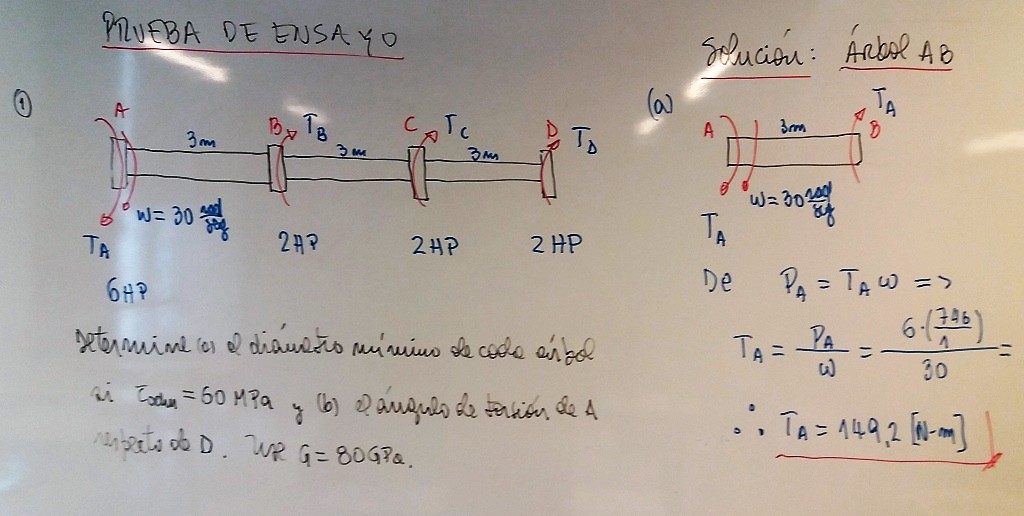 PRUEBA DE ENSAYO
①
A
3m
B
T_B
3m
C
T_C
3m
D
T_D
ω = 30 rad/seg
T_A
6HP
2HP
2HP
2HP
Determine (a) el diámetro mínimo de cada árbol
si τadm = 60 MPa y (b) el ángulo de torsión de A
respecto de D. G = 80GPa.
Solución: Árbol AB
(a)
A
3m
T_A
B
ω = 30 rad/seg
T_A
De P_A = T_A ω =>
T_A = P_A/ω = 6·(746/1)/30 =
∴ T_A = 149,2 [N-m]